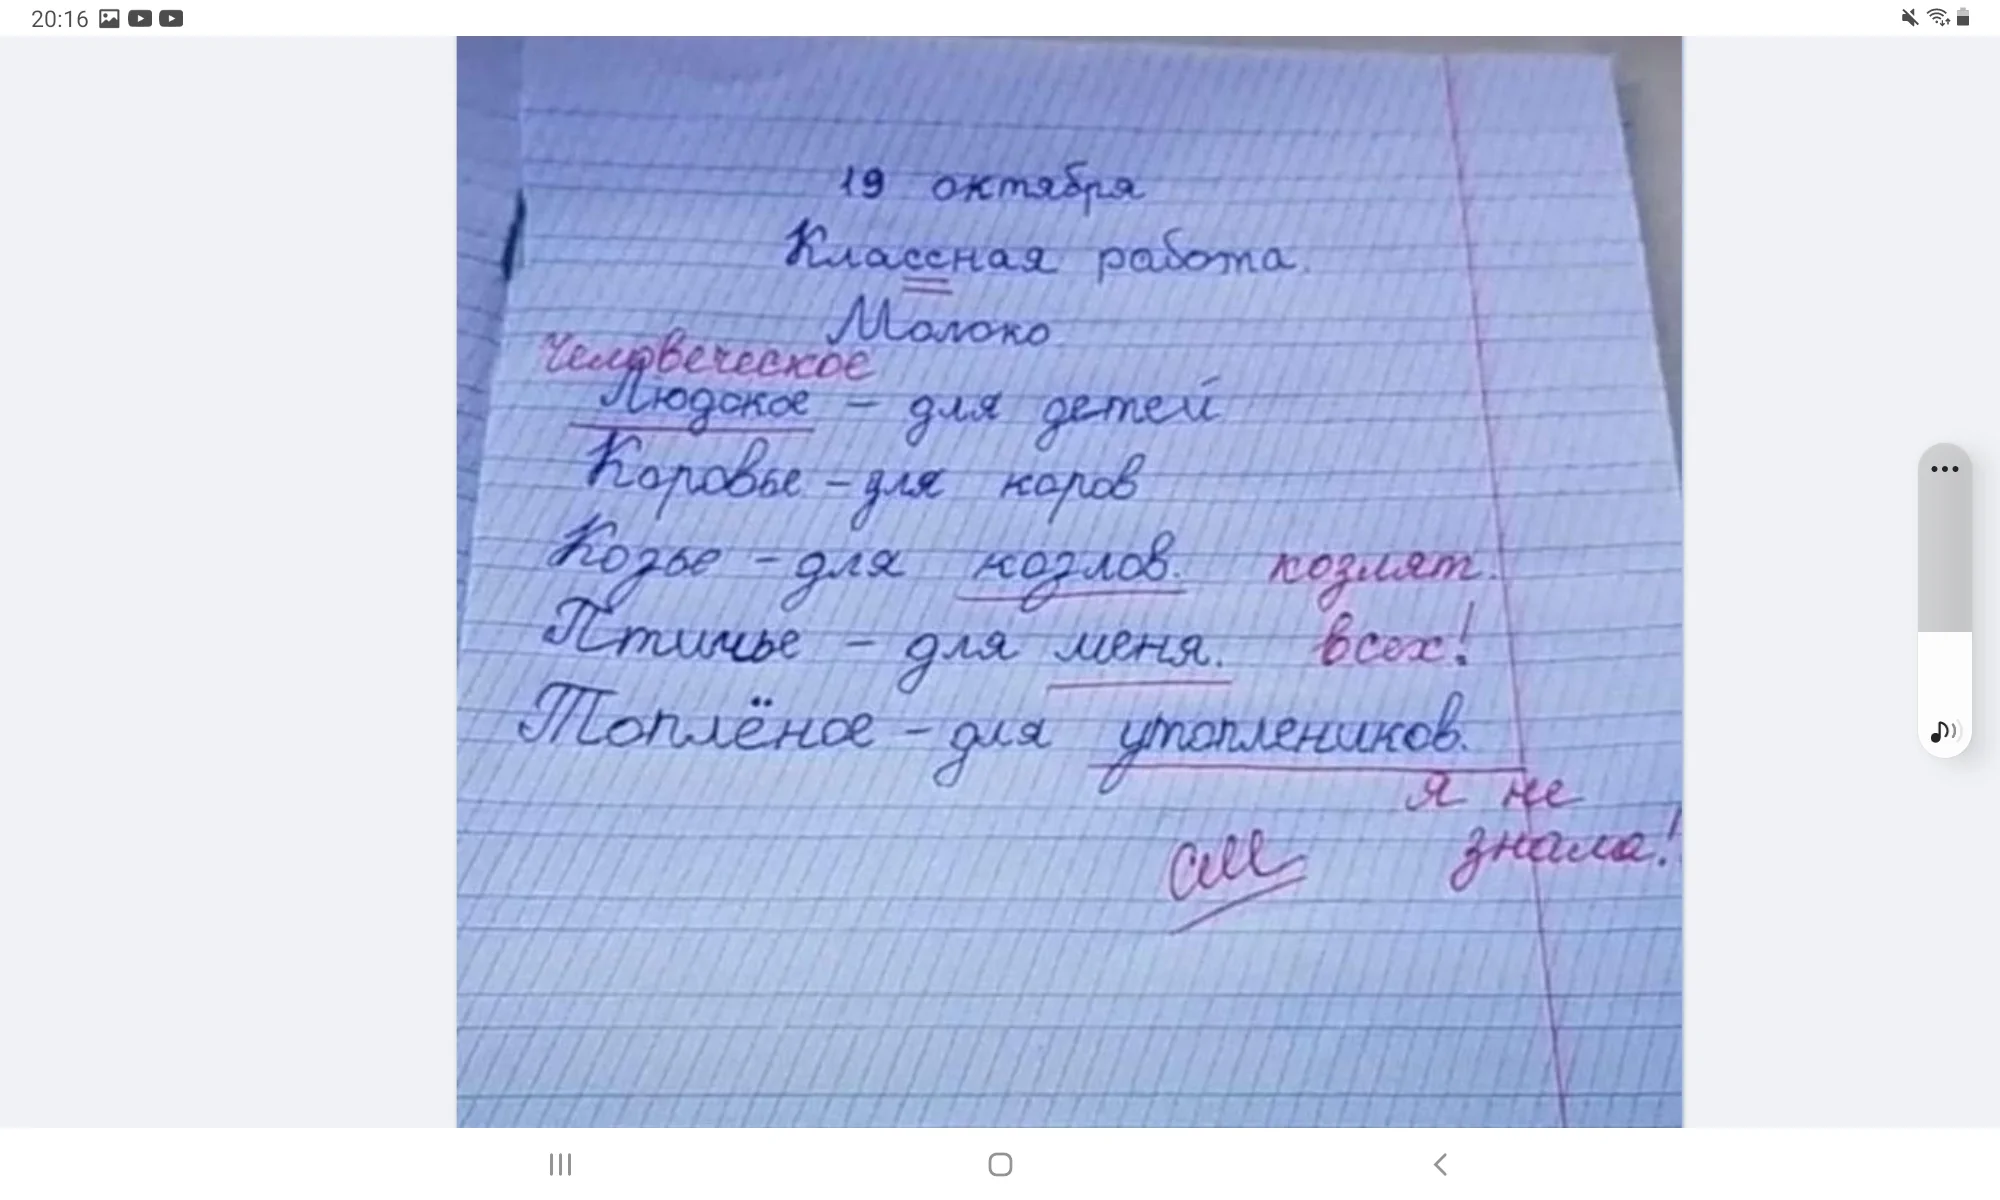 20:16
19 октября
Классная работа.
Молоко
Человеческое
Людское - для детей
Коровье - для коров
Козье - для козлов. козлят.
Птичье - для меня. всех!
Топлёное - для утоплеников.
я не
знала!